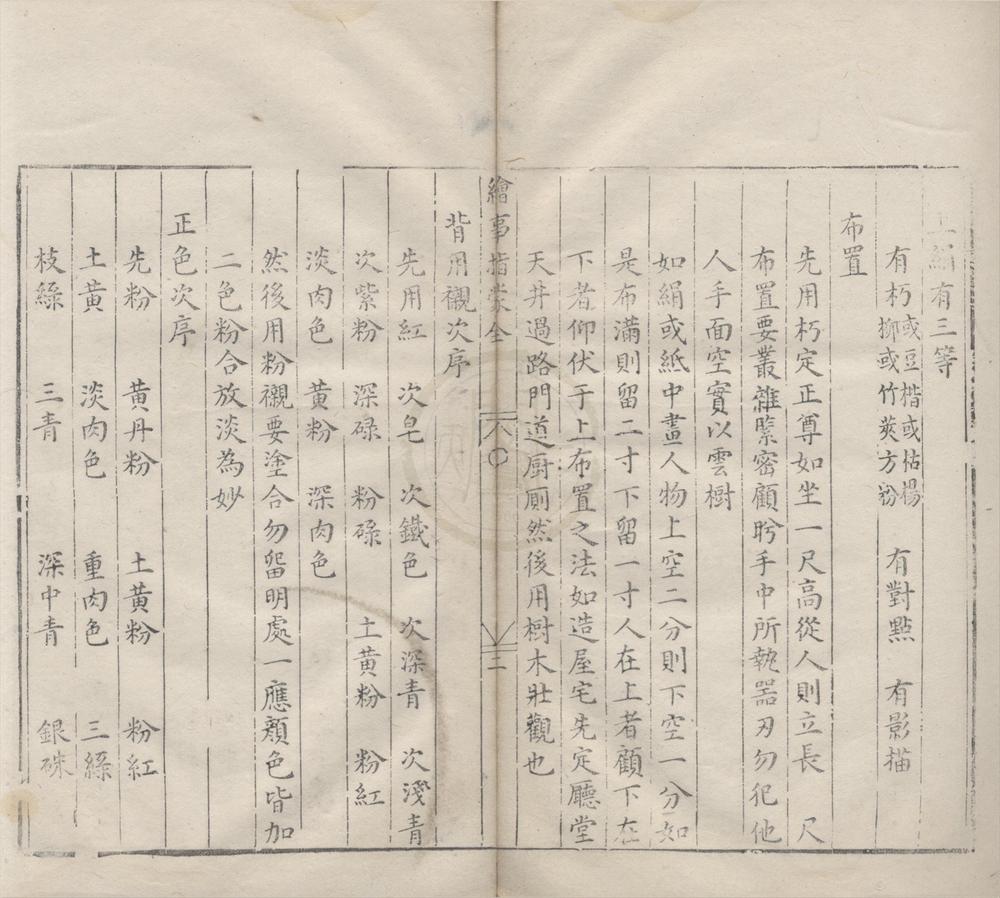 上絹有三等
有朽或豆楷或枯楊柳或竹莢方粉 有對㸃 有影描
布置
先用朽定正尊如坐一尺高從人則立長 尺
布置要叢雜緊密顧盻手中所執噐刃勿犯他
人手面空實以雲樹
如絹或紙中畫人物上空二分則下空一分如
是布滿則留二寸下留一寸人在上者顧下在
下者仰伏于上布置之法如造屋宅先定廳堂
天井過路門道厨厠然後用樹木壯觀也
繪事指蒙全 二
背用襯次序
先用紅 次皂 次鐵色 次深青 次淺青
次紫粉 深碌 粉碌 土黄粉 粉紅
淡肉色 黄粉 深肉色
然後用粉襯要塗合勿留明處一應顔色皆加
二色粉合放淡為妙
正色次序
先粉 黄丹粉 土黄粉 粉紅
土黄 淡肉色 重肉色 三綠
枝綠 三青 深中青 銀硃